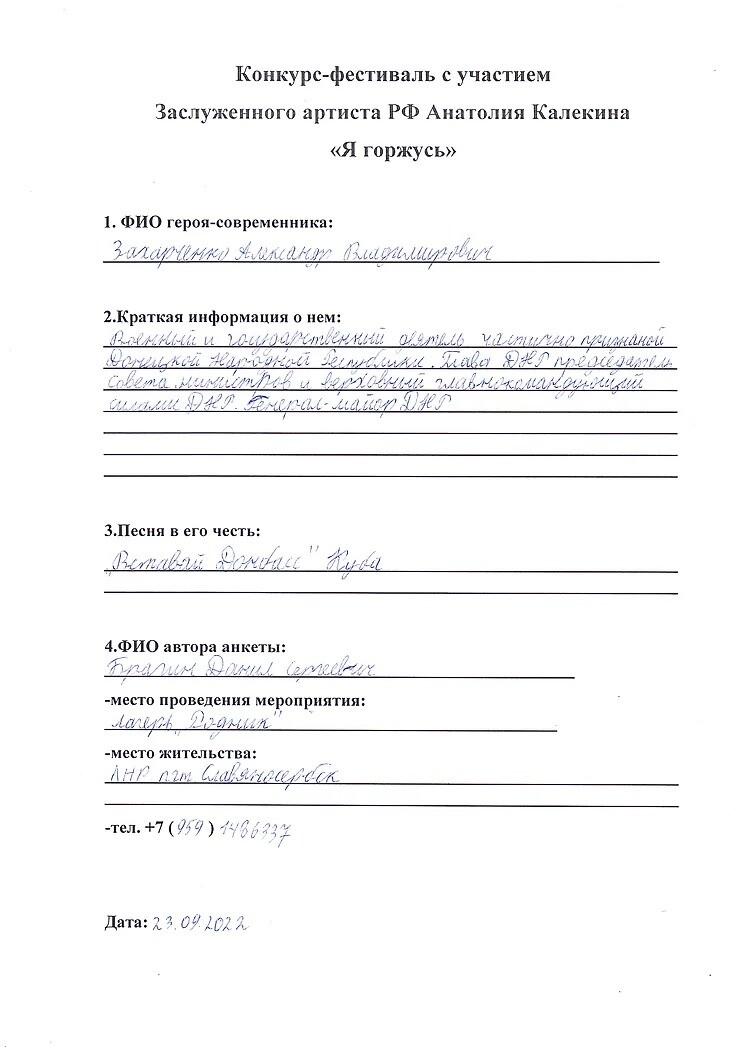 Конкурс-фестиваль с участием
Заслуженного артиста РФ Анатолия Калекина
«Я горжусь»
1. ФИО героя-современника:
Захарченко Александр Владимирович
2.Краткая информация о нем:
Военный и государственный деятель частично признаной
Донецкой Народной Республики. Глава ДНР председатель
совета министров и верховный главнокомандующий
силами ДНР. Генерал-майор ДНР
3.Песня в его честь:
„Вставай Донбасс" Куба
4.ФИО автора анкеты:
Брагин Данил Сергеевич
-место проведения мероприятия:
Лагерь „Родник"
-место жительства:
ЛНР пгт Славяносербск
-тел. +7 (959) 1486337
Дата: 23.09.2022